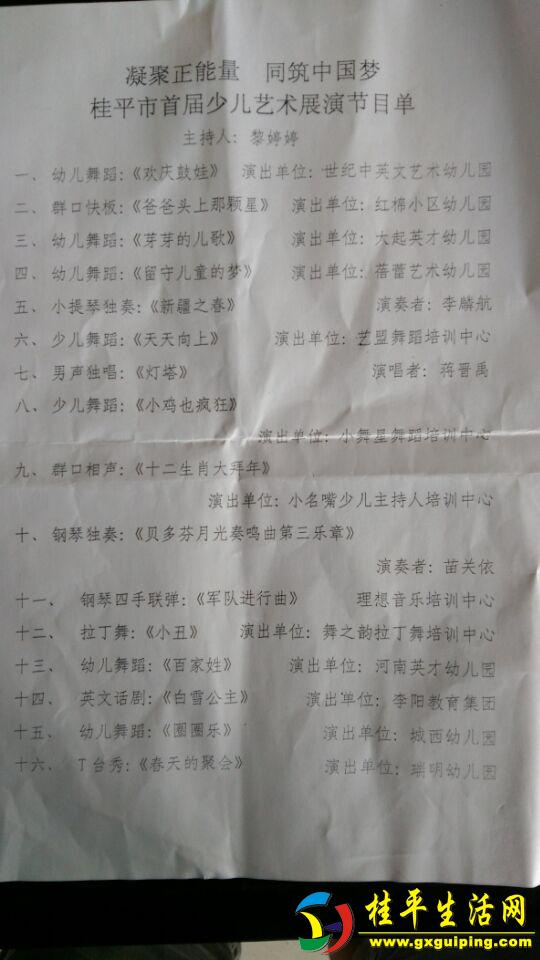 凝聚正能量　同筑中国梦
桂平市首届少儿艺术展演节目单
主持人：黎婷婷
一、 幼儿舞蹈：《欢庆鼓娃》 演出单位：世纪中英文艺术幼儿园
二、 群口快板：《爸爸头上那颗星》 演出单位：红棉小区幼儿园
三、 幼儿舞蹈：《芽芽的儿歌》 演出单位：大起英才幼儿园
四、 幼儿舞蹈：《留守儿童的梦》 演出单位：蓓蕾艺术幼儿园
五、 小提琴独奏：《新疆之春》 演奏者：李麟航
六、 少儿舞蹈：《天天向上》 演出单位：艺盟舞蹈培训中心
七、 男声独唱：《灯塔》 演唱者：蒋晋禹
八、 少儿舞蹈：《小鸡也疯狂》
演出单位：小舞星舞蹈培训中心
九、 群口相声：《十二生肖大拜年》
演出单位：小名嘴少儿主持人培训中心
十、 钢琴独奏：《贝多芬月光奏鸣曲第三乐章》
演奏者：苗关依
十一、 钢琴四手联弹：《军队进行曲》 理想音乐培训中心
十二、 拉丁舞：《小丑》 演出单位：舞之韵拉丁舞培训中心
十三、 幼儿舞蹈：《百家姓》 演出单位：河南英才幼儿园
十四、 英文话剧：《白雪公主》 演出单位：李阳教育集团
十五、 幼儿舞蹈：《圈圈乐》 演出单位：城西幼儿园
十六、 T台秀：《春天的聚会》 演出单位：瑞明幼儿园
桂平生活网
www.gxguiping.com